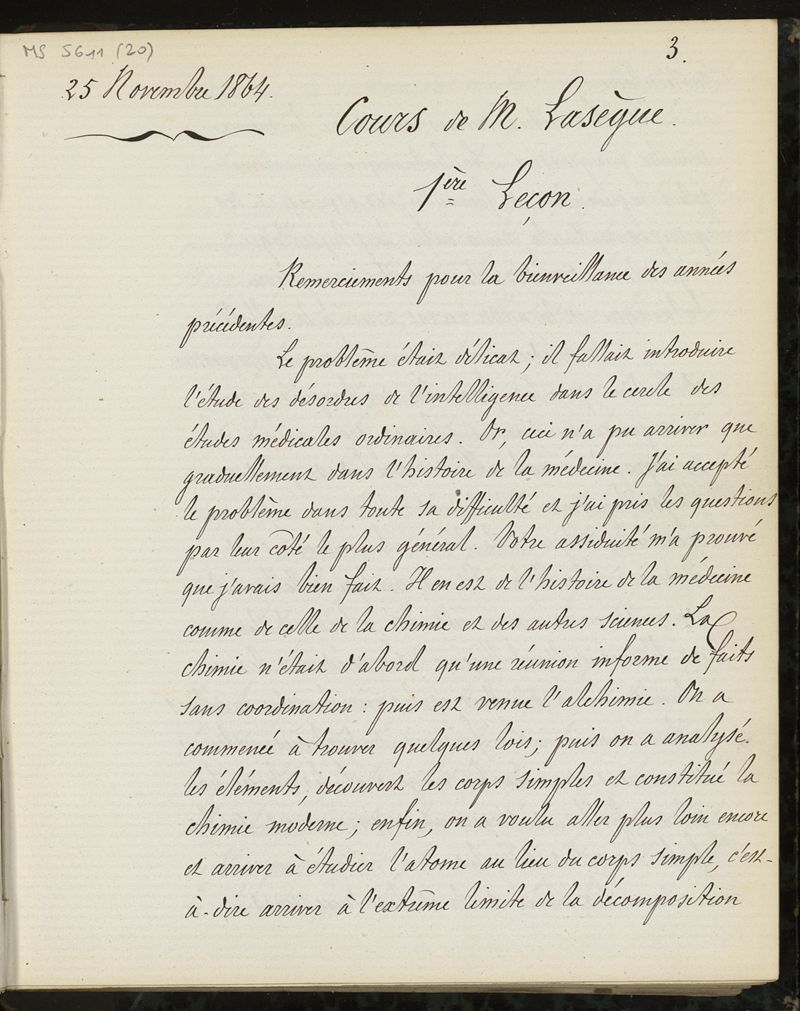 MS 5611 (20)
3.
25 Novembre 1864.
Cours de M. Lasègue.
1ère Leçon.
Remerciements pour la bienveillance des années
précédentes.
Le problème était délicat; il fallait introduire
l'étude des désordres de l'intelligence dans le cercle des
études médicales ordinaires. Or, ceci n'a pu arriver que
graduellement dans l'histoire de la médecine. J'ai accepté
le problème dans toute sa difficulté et j'ai pris les questions
par leur côté le plus général. Votre assiduité m'a prouvé
que j'avais bien fait. Il en est de l'histoire de la médecine
comme de celle de la chimie et des autres sciences. La
chimie n'était d'abord qu'une réunion informe de faits
sans coordination : puis est venue l'alchimie. On a
commencé à trouver quelques lois; puis on a analysé
les éléments, découvert les corps simples et constitué la
chimie moderne; enfin, on a voulu aller plus loin encore
et arriver à étudier l'atome au lieu du corps simple, c'est-
à-dire arriver à l'extrême limite de la décomposition